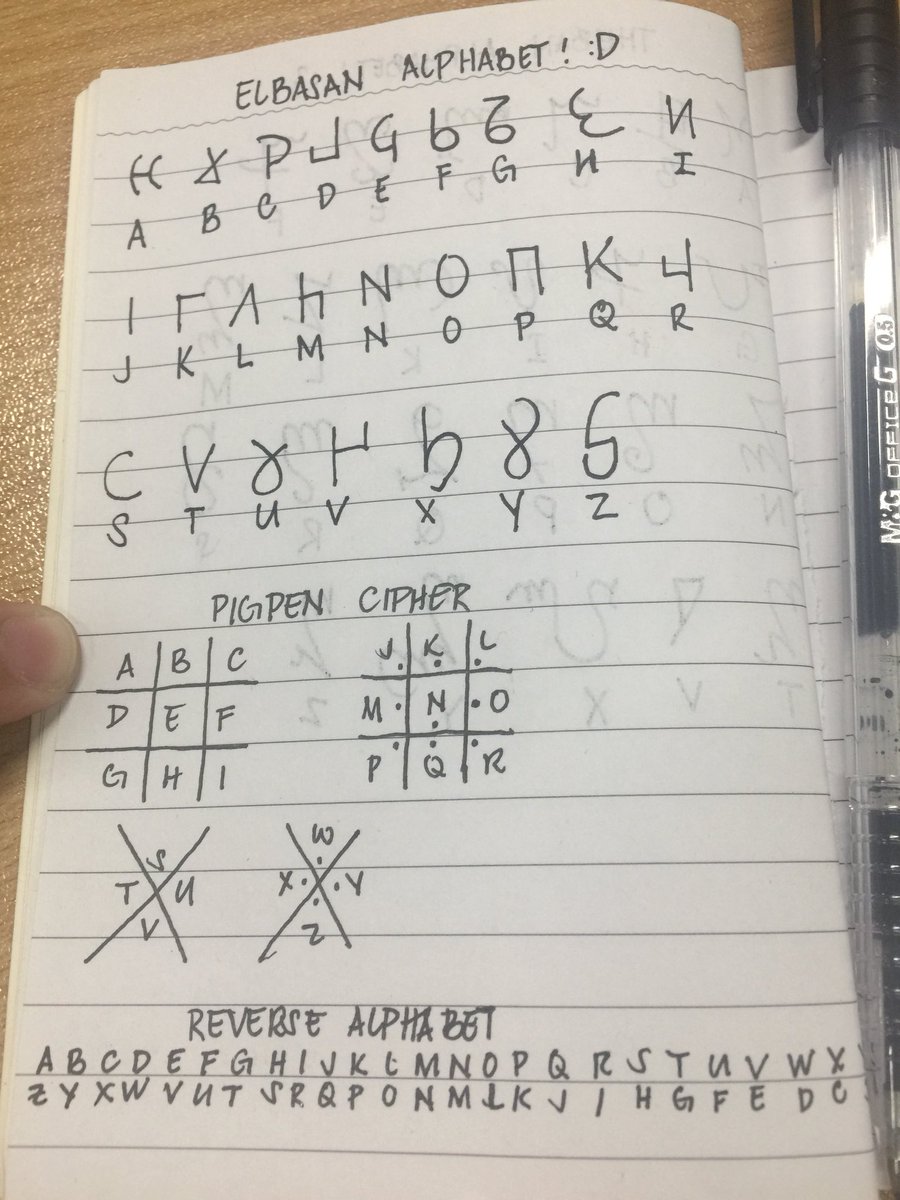 ELBASAN ALPHABET! :D
A B C D E F G H I
J K L M N O P Q R
S T U V X Y Z
PIGPEN CIPHER
A B C J K L
D E F M N O
G H I P Q R
S W
T U X Y
V Z
REVERSE ALPHABET
A B C D E F G H I J K L M N O P Q R S T U V W X
Z Y X W V U T S R Q P O N M L K J I H G F E D C
M&G OFFICE G 0.5